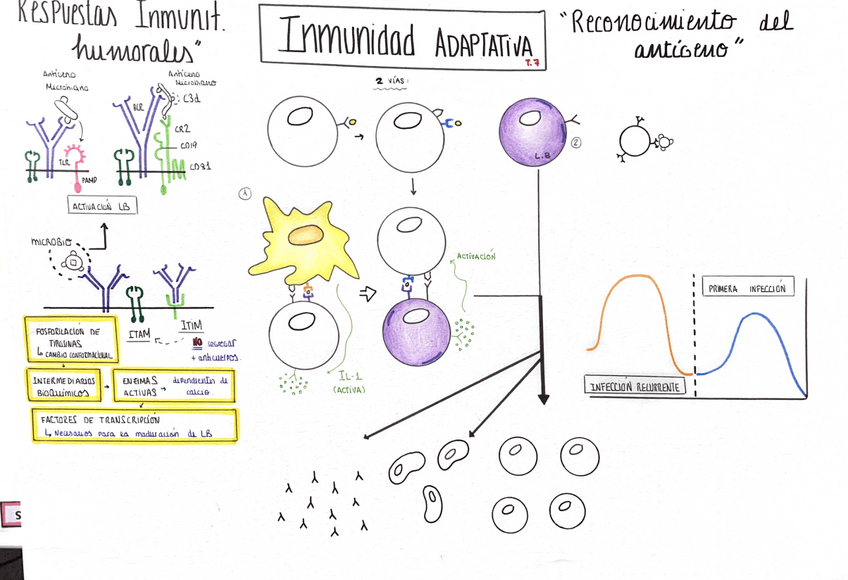 Respuestas Inmunit.
humorales"
Inmunidad ADAPTATIVA
T.7
"Reconocimiento del
antígeno"
2 VÍAS:
Antígeno
Microbiano
Antígeno
Microbiano
BCR
C3d
CR2
CD19
CD81
TLR
PAMP
ACTIVACIÓN LB
MICROBIO
ITAM
ITIM
NO
+ anticuerpos.
FOSFORILACIÓN DE
TIROSINAS
↳ CAMBIO CONFORMACIONAL
INTERMEDIARIOS
BIOQUÍMICOS
ENZIMAS
ACTIVAS
→ dependientes de
calcio.
FACTORES DE TRANSCRIPCIÓN
↳ Necesarios para la maduración de LB
1
L.B
2
ACTIVACIÓN
IL-1
(ACTIVA)
PRIMERA INFECCIÓN
INFECCIÓN RECURRENTE
S